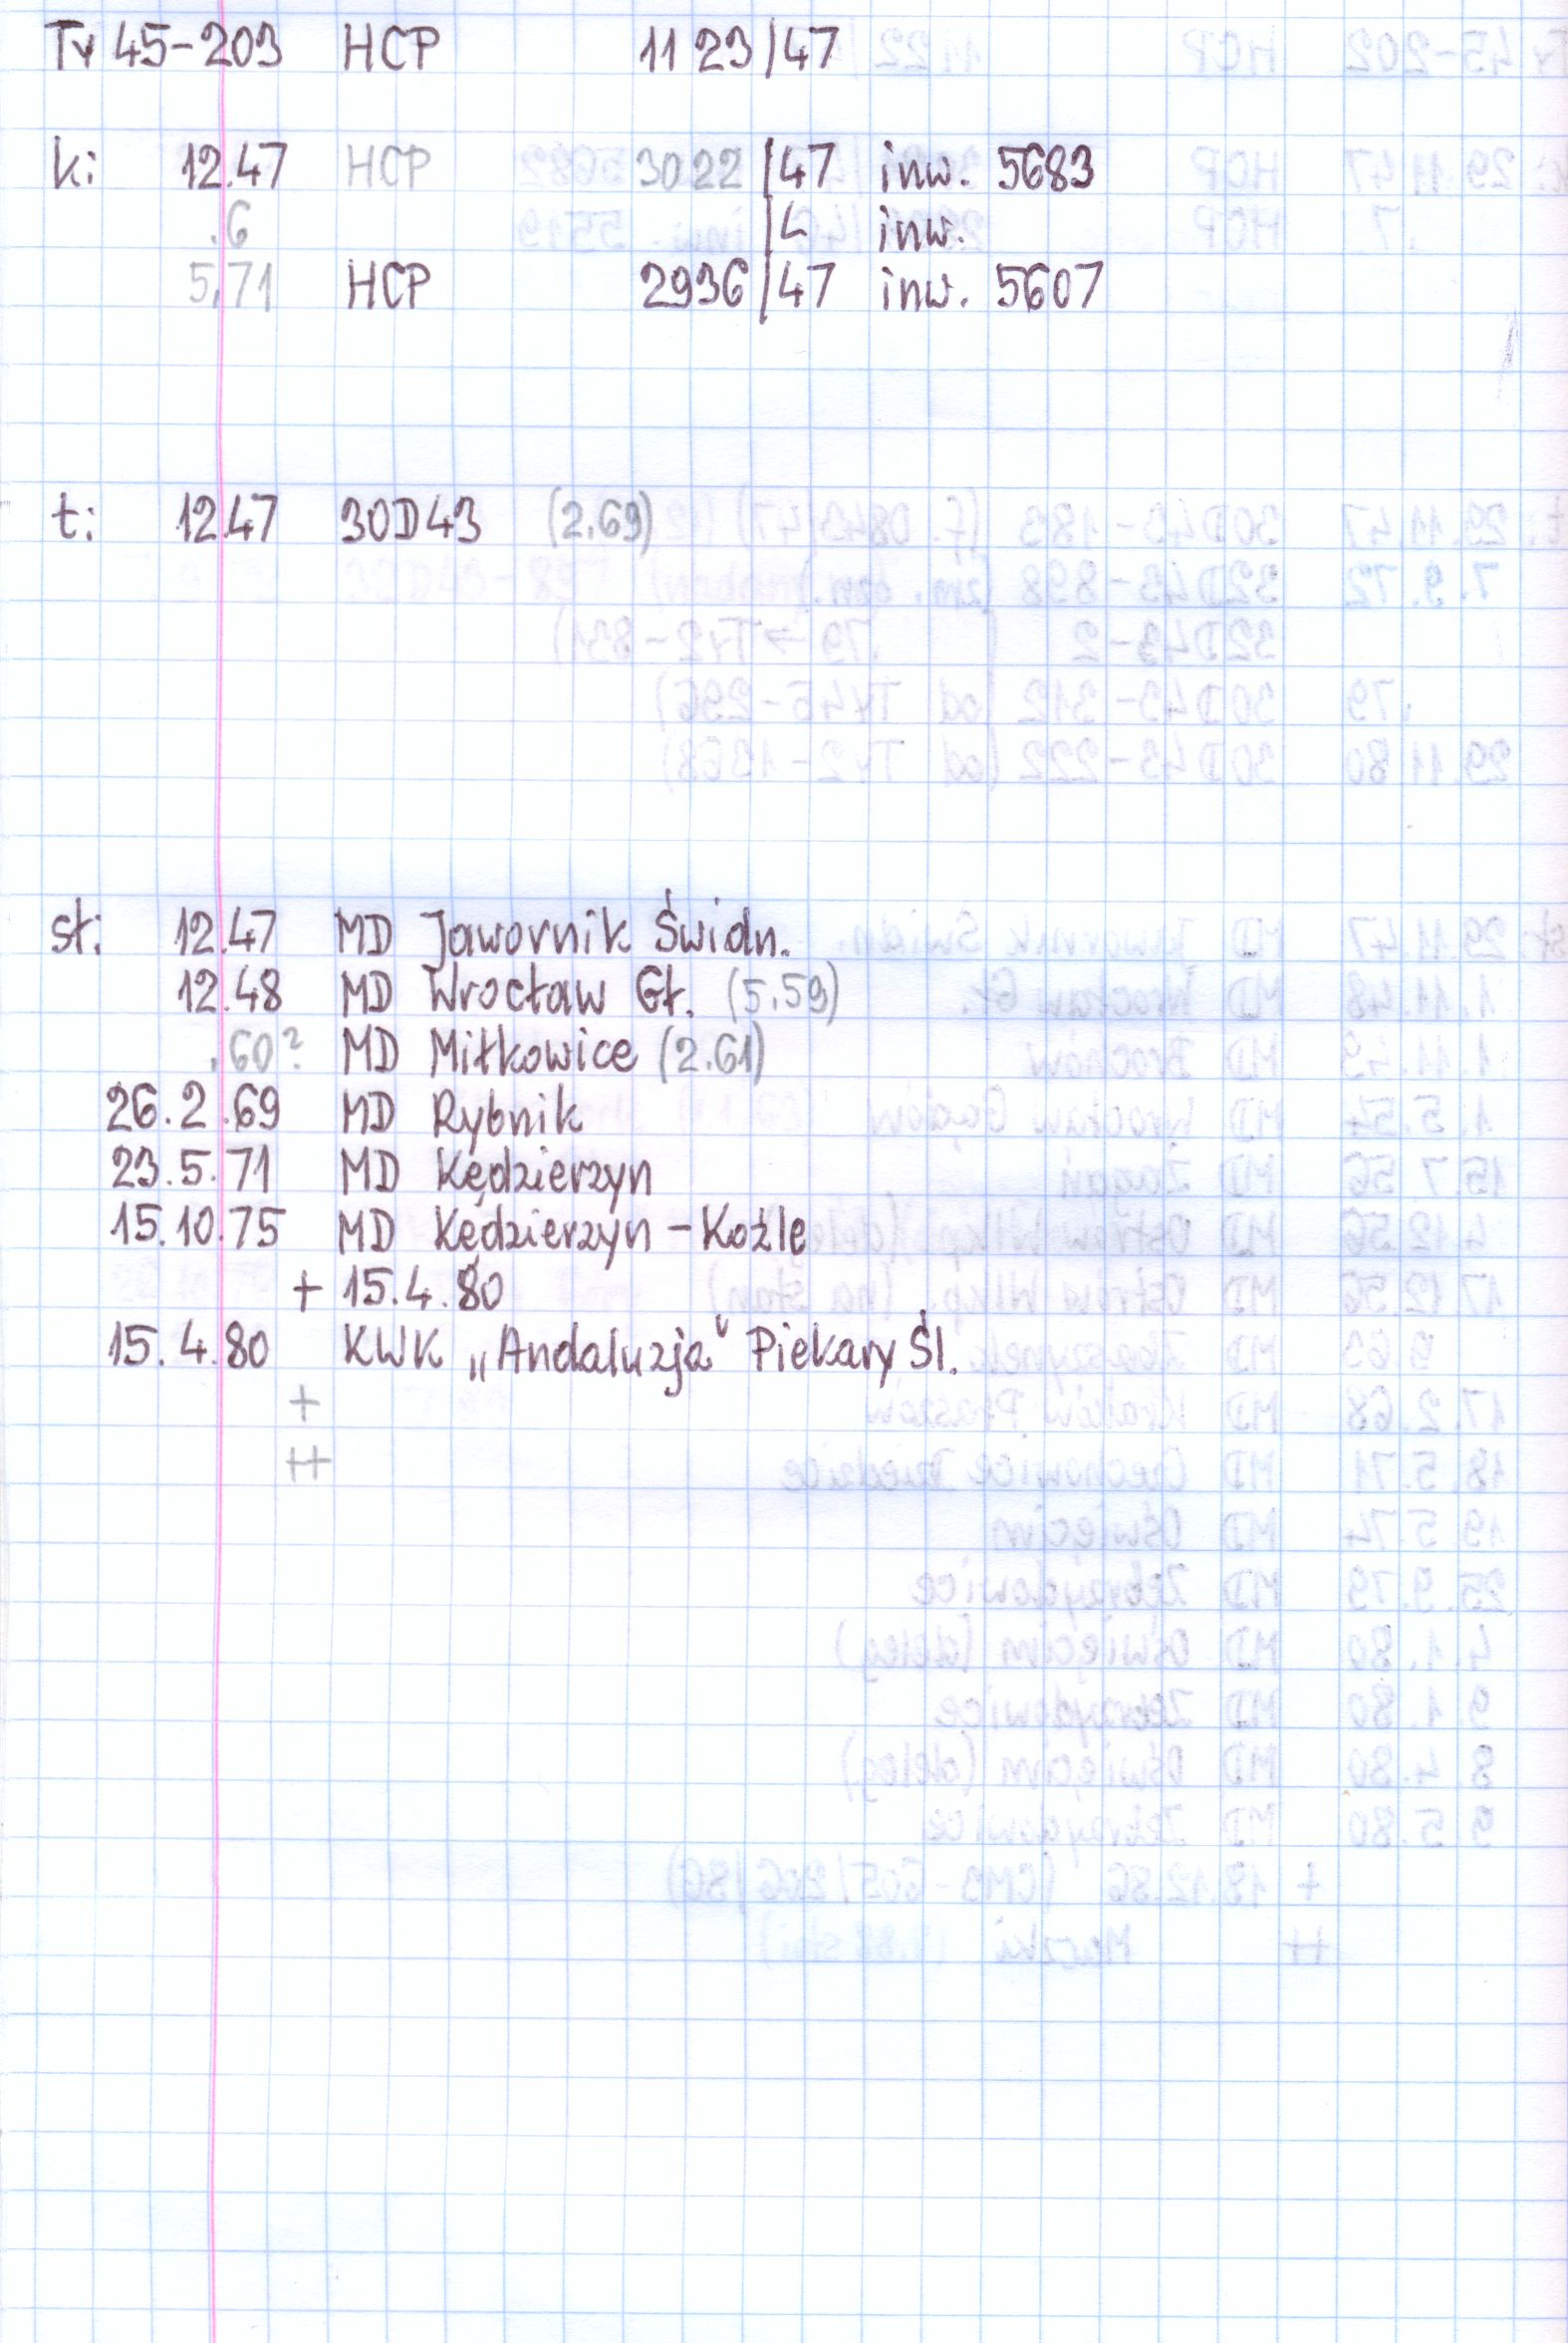 Ty 45-203 HCP 1123/47
k: 12.47 HCP 3022/47 inw. 5683
.6 /4 inw.
5.71 HCP 2936/47 inw. 5607
t: 12.47 30D43 (2.69)
st: 12.47 MD Jawornik Świdn.
12.48 MD Wrocław Gł. (5.59)
.60? MD Miłkowice (2.61)
26.2.69 MD Rybnik
23.5.71 MD Kędzierzyn
15.10.75 MD Kędzierzyn-Koźle
+ 15.4.80
15.4.80 KWK „Andaluzja" Piekary Śl.
+
++